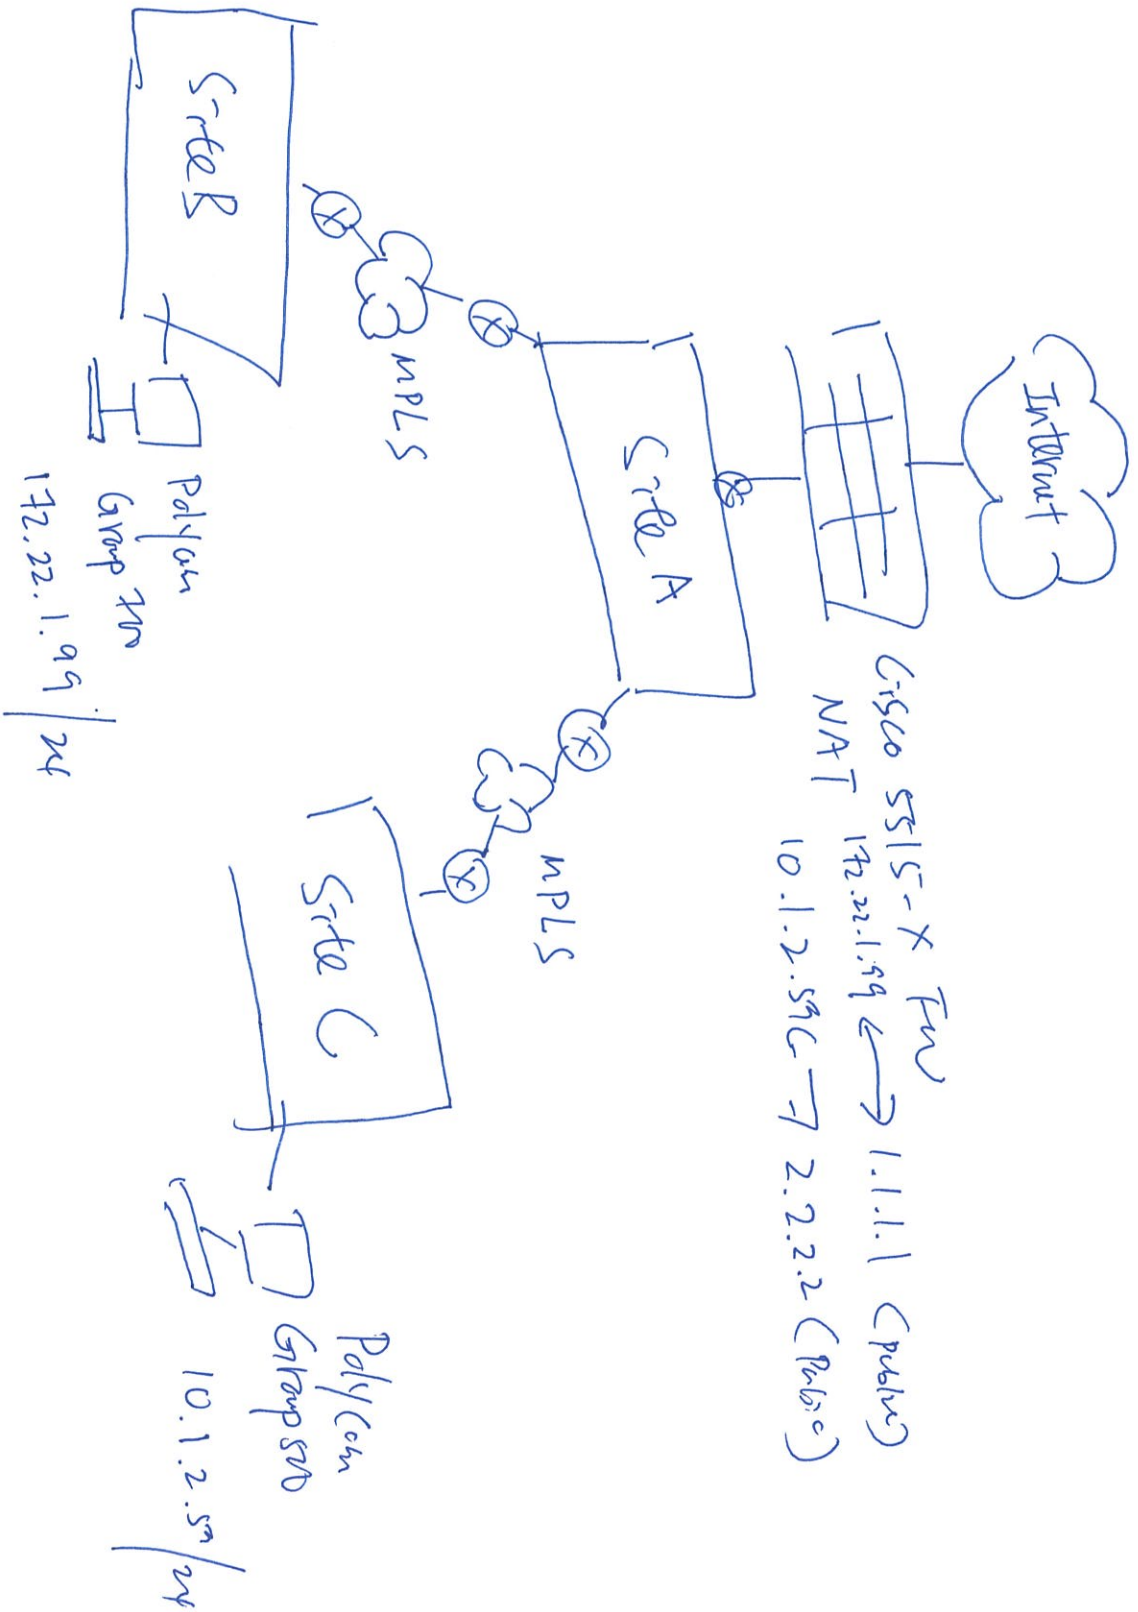 Internet
Cisco 5515-X FW
NAT 172.22.1.99 ↔ 1.1.1.1 (public)
10.1.2.59 ↔ 2.2.2.2 (Public)
Site A
MPLS
MPLS
Site B
Polycom
Group 700
172.22.1.99/24
Site C
Polycom
Group 500
10.1.2.59/24